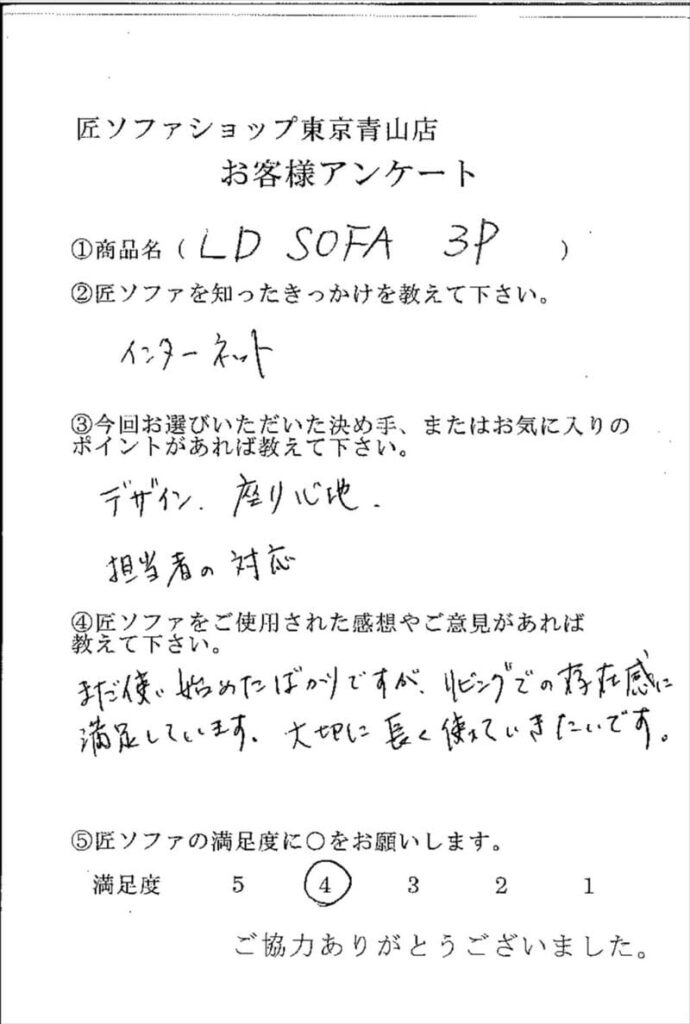 匠ソファショップ東京青山店
お客様アンケート
①商品名（ LD SOFA 3P ）
②匠ソファを知ったきっかけを教えて下さい。
インターネット
③今回お選びいただいた決め手、またはお気に入りの
ポイントがあれば教えて下さい。
デザイン. 座り心地.
担当者の対応
④匠ソファをご使用された感想やご意見があれば
教えて下さい。
まだ使い始めたばかりですが、リビングでの存在感に
満足しています。大切に長く使っていきたいです。
⑤匠ソファの満足度に○をお願いします。
満足度 5 4 3 2 1
ご協力ありがとうございました。